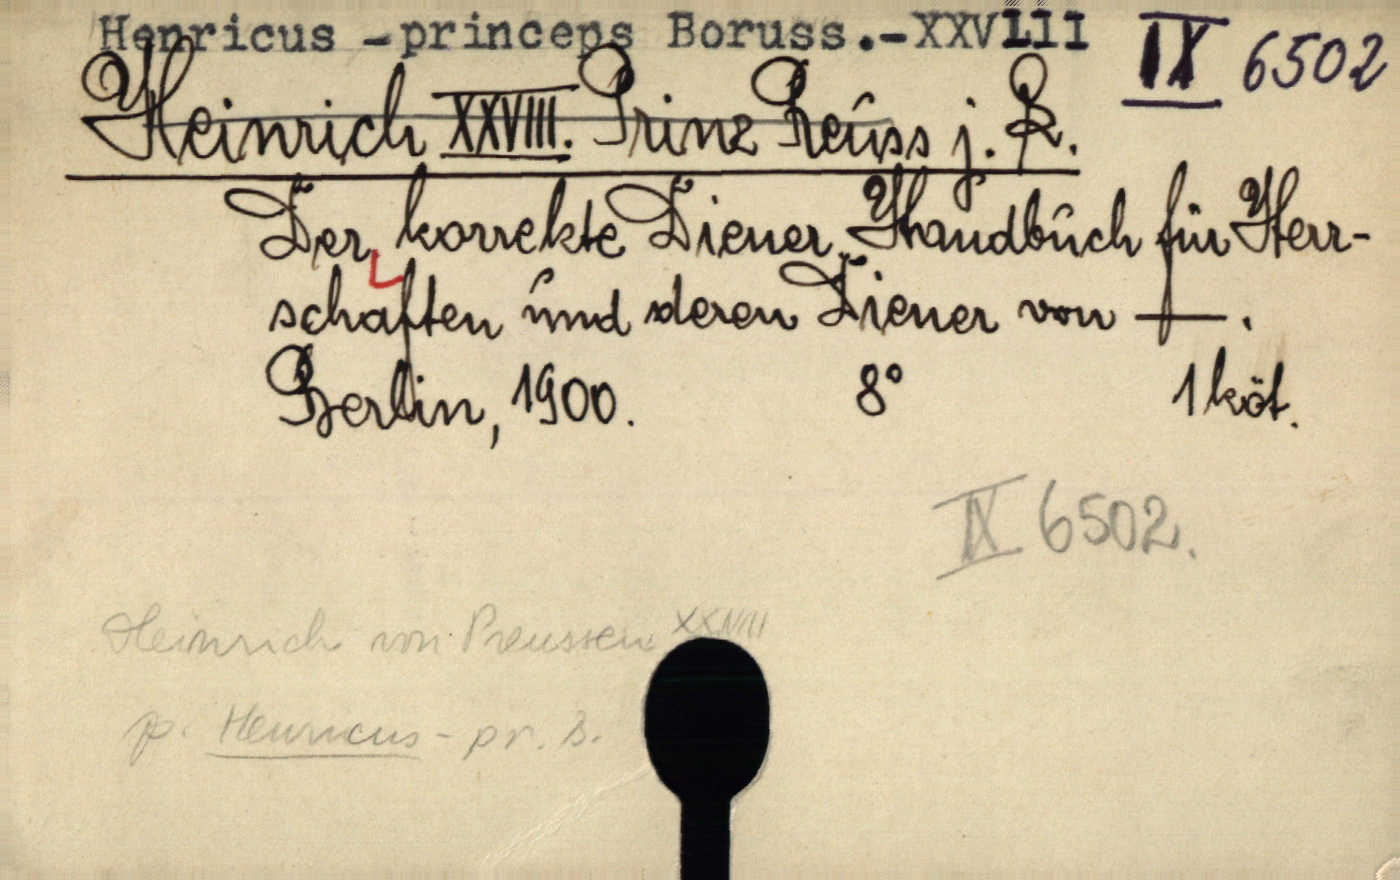 Henricus - princeps Boruss.-XXVIII
IX 6502
Heinrich XXVIII. Prinz Reuss j. R.
Der korrekte Diener. Handbuch für Herr-
schaften und deren Diener von —.
Berlin, 1900. 8° 1 köt.
IX 6502.
Heinrich von Preussen XXVIII
p. Henricus - pr. B.